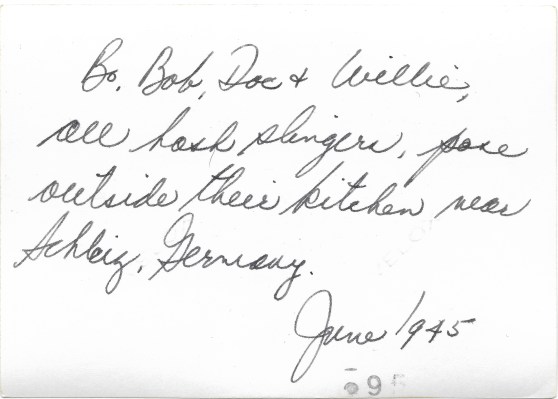 Bo, Bob, Doc & Willie,
all hash slingers, pose
outside their kitchen near
Schleiz, Germany.
June 1945